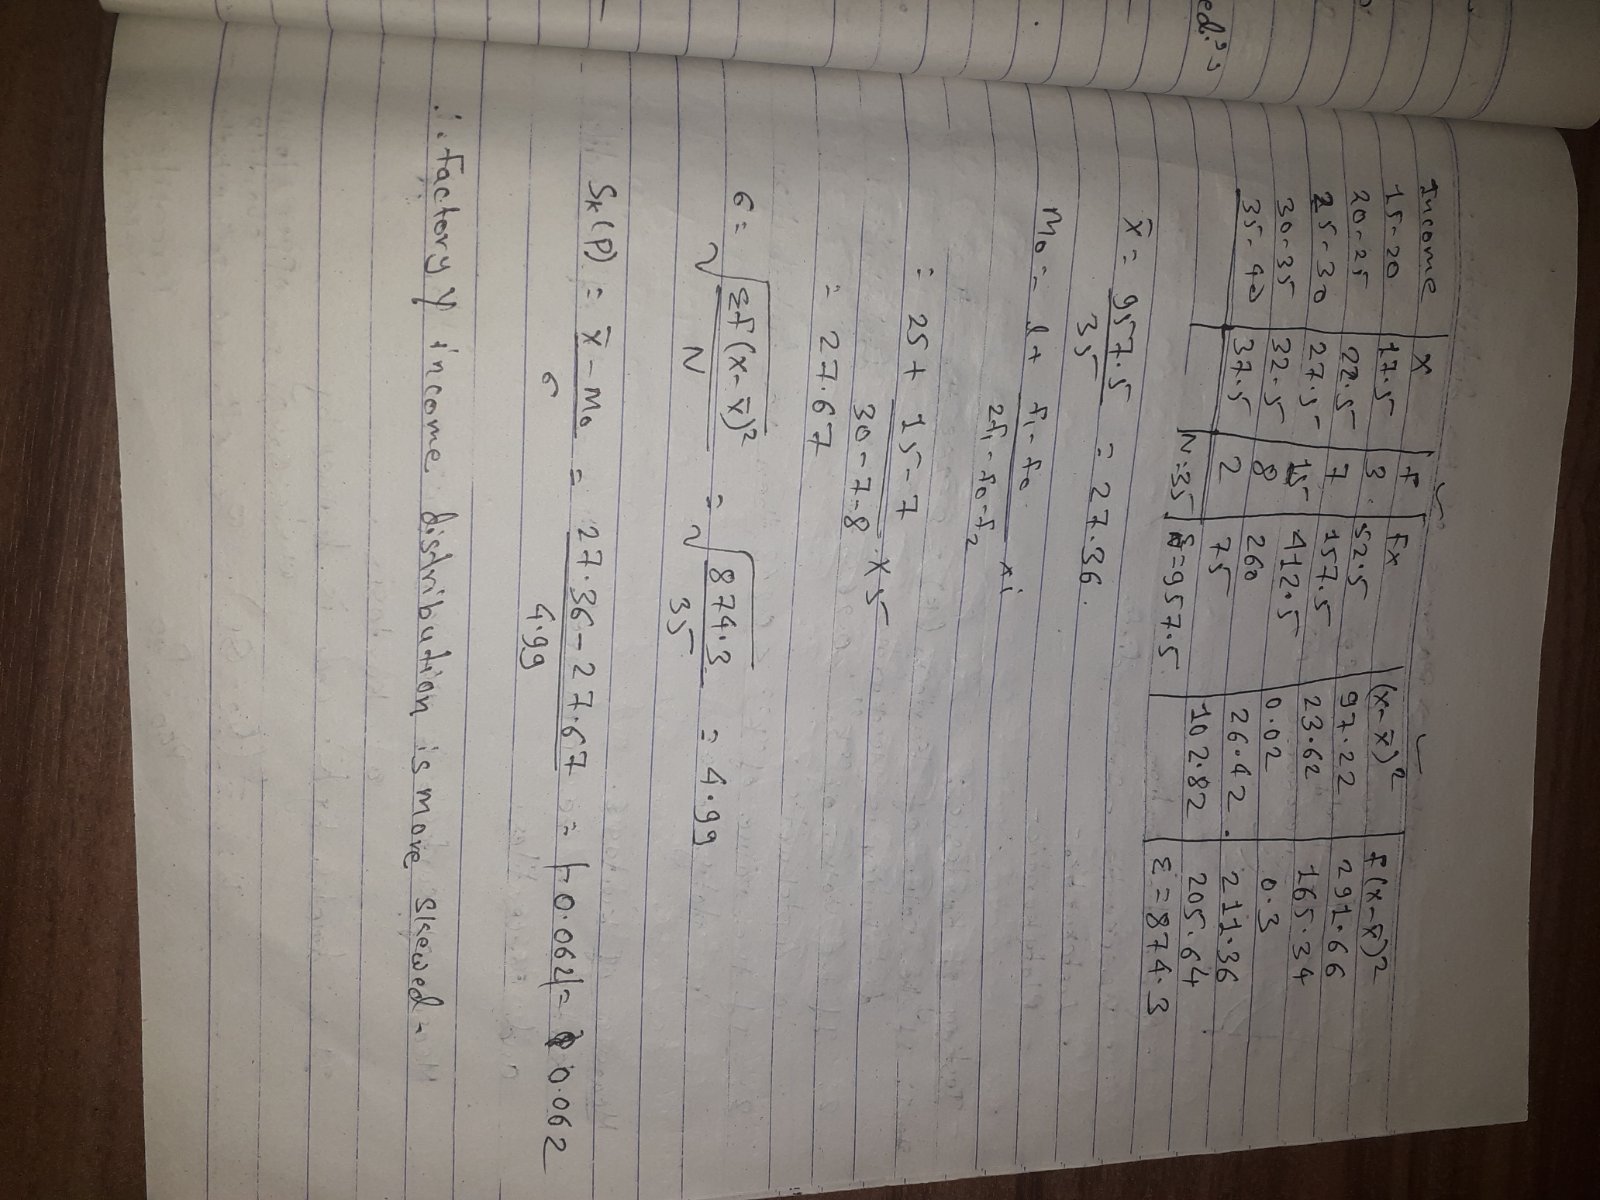 ed.??
Income x f fx (x-x̄)² f(x-x̄)²
15-20 17.5 3 52.5 97.22 291.66
20-25 22.5 7 157.5 23.62 165.34
25-30 27.5 15 412.5 0.02 0.3
30-35 32.5 8 260 26.42 211.36
35-40 37.5 2 75 102.82 205.64
N=35 Σ=957.5 Σ=874.3
x̄ = 957.5/35 = 27.36
Mo = l + f₁-f₀/2f₁-f₀-f₂ × i
= 25 + 15-7/30-7-8 × 5
= 27.67
σ = √Σf(x-x̄)²/N = √874.3/35 = 4.99
Sk(P) = x̄-Mo/σ = 27.36-27.67/4.99 = |-0.062| = 0.062
∴ factory Y income distribution is more skewed.